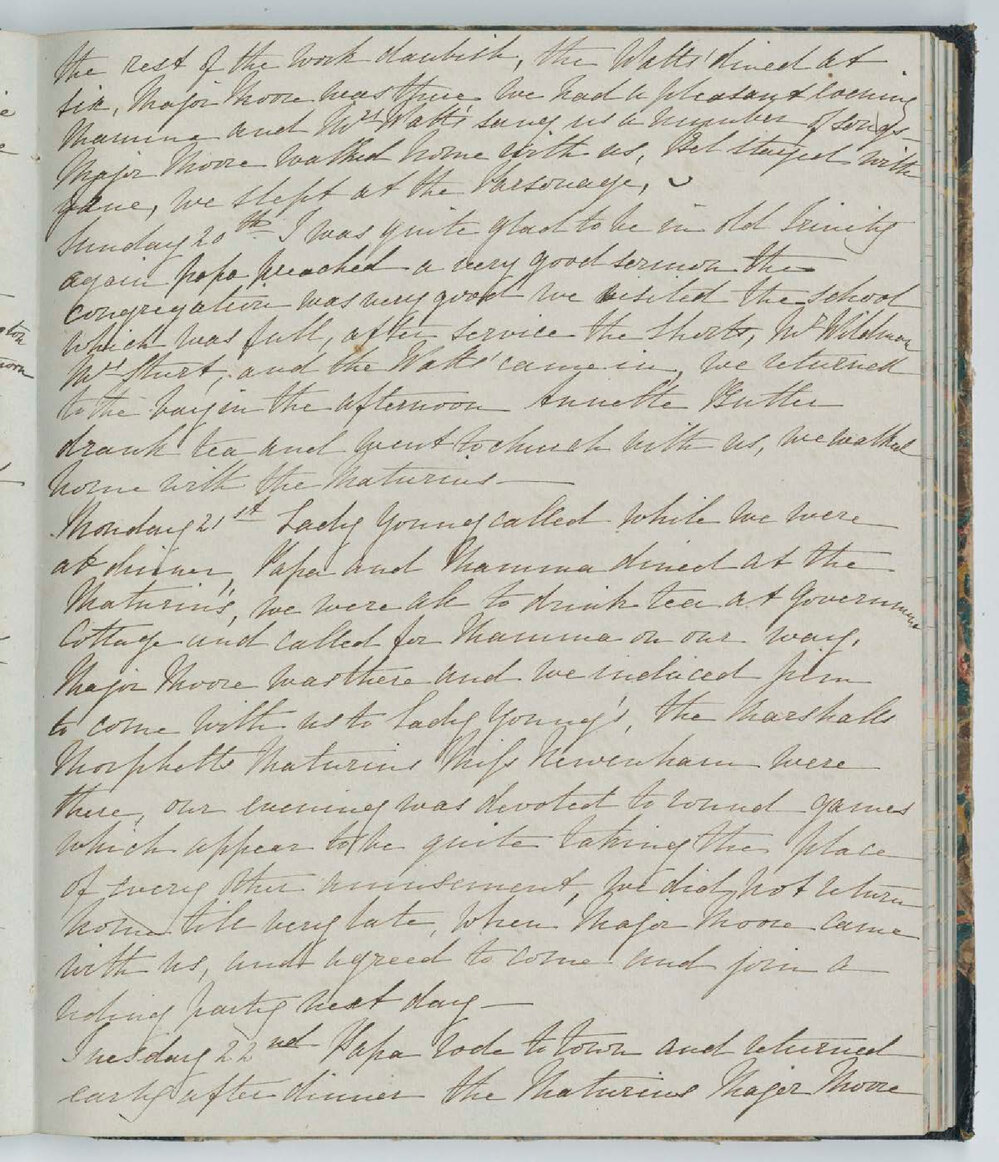 the rest of the work daubish, the Watts' dined at
six, Major Moore was there we had a pleasant evening
Mamma and Mrs Watts' sang us a number of songs
Major Moore walked home with us, Bel stayed with
Jane, we slept at the Parsonage,
Sunday 20th I was quite glad to be in old Trinity
again papa preached a very good sermon the
congregation was very good we visited the school
which was full, after service the Shorts, Mr Wildman
Mrs Sturt, and the Watts' came in, we returned
to the bay in the afternoon Annette Butler
drank tea and went to church with us, we walked
home with the Maturins —
Monday 21st Lady Young called while we were
at dinner, Papa and Mamma dined at the
Maturin's, we were all to drink tea at Government
Cottage and called for Mamma on our way,
Major Moore was there and we induced him
to come with us to Lady Young's, the Marshalls
Morphetts Maturins Miss Newenham were
there, our evening was devoted to round games
which appear to be quite taking the place
of every other amusement, we did not return
home till very late, when Major Moore came
with us, and agreed to come and join a
riding party next day —
Tuesday 22nd Papa rode to town and returned
early after dinner the Maturins Major Moore